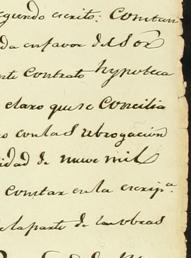 segundo escrito. Constan
da en favor del Sor
nte contrato hypoteca
claro que se Concilia
o con la Subrogacion
idad de nueve mil
Constar en la escrip.a
e la parte de las obras